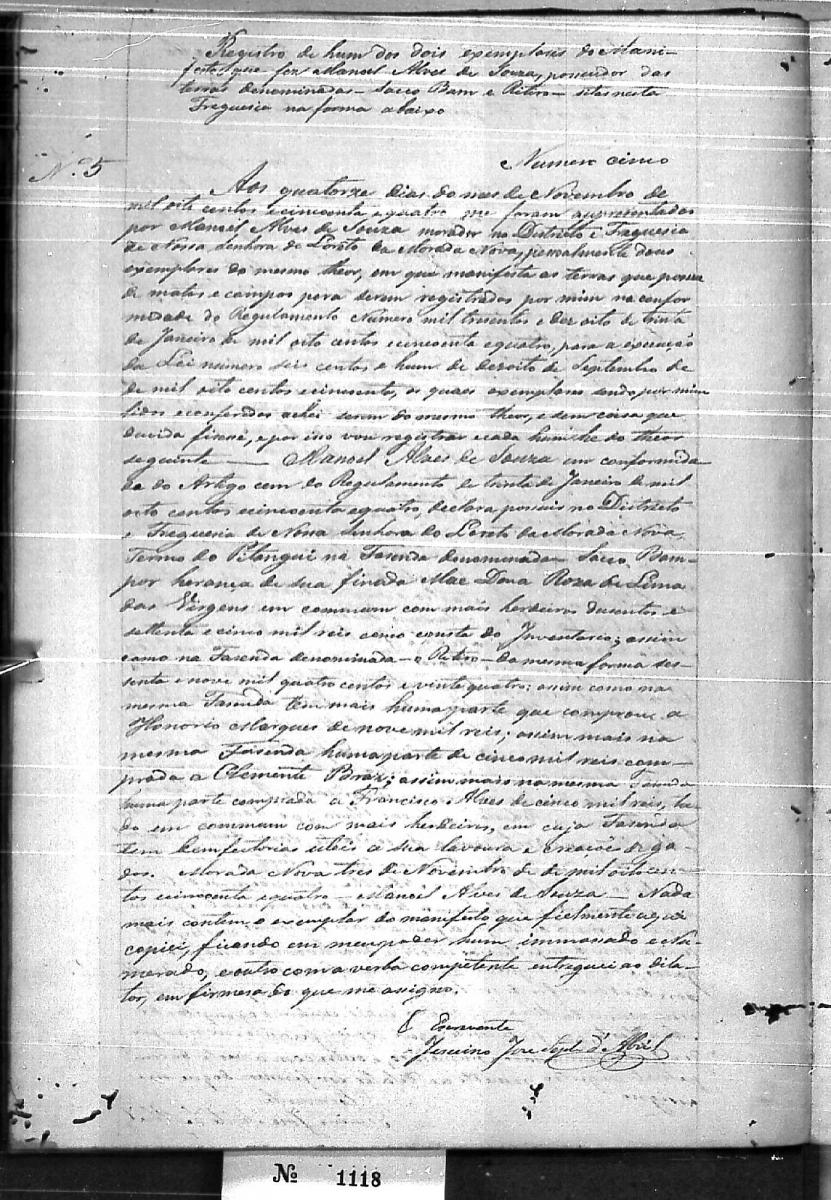 Registro de hum dos dois exemplares do Mani-
festo que fez Manoel Alves de Souza, possuidor das
terras denominadas - Sacco Bom e Retiro - sitas nesta
Freguesia na forma abaixo
Nº 5
Numero cinco
Aos quatorze dias do mes de Novembro de
mil oito centos e cincoenta e quatro me foram appresentados
por Manoel Alves de Souza morador no Districto e Freguesia
de Nossa Senhora do Loreto da Morada Nova, pessoalmente dous
exemplares do mesmo theor, em que manifesta as terras que possue
de matos e campos para serem registrados por mim na confor
midade do Regulamento Numero mil tresentos e dez oito de trinta
de Janeiro de mil oito centos e cincoenta e quatro, para a execução
da Lei numero seis centos e hum de dezoito de Septembro de
de mil oito centos e cincoenta, os quaes exemplares sendo por mim
lidos e conferidos achei serem do mesmo theor, e sem coisa que
duvida fizesse, e por isso vou registrar e cada hum he do theor
seguinte — Manoel Alves de Souza em conformida-
de do Artigo cem do Regulamento de trinta de Janeiro de mil
oito centos e cincoenta e quatro, declara possuir no Districto
e Freguesia de Nossa Senhora do Loreto da Morada Nova,
Termo do Pitangui na Fasenda denominada - Sacco Bom -
por herança de sua finada Mae Dona Roza de Lima
das Virgens em commum com mais herdeiros dusentos e
settenta e cinco mil reis como consta do Inventario; assim
como na Fasenda denominada - o Retiro - da mesma forma ses-
senta e nove mil quatro centos e vinte quatro; assim como na
mesma Fasenda tem mais huma parte que comprou a
Honorio Marques de nove mil reis; assim mais na
mesma Fasenda huma parte de cinco mil reis com-
prada a Clemente Braz; assim mais na mesma Fasenda
huma parte comprada a Francisco Alves de cinco mil reis, tu-
do em commum com mais herdeiros, em cuja Fasenda
tem bemfeitorias uteis a sua lavoura e creação de ga-
dos. Morada Nova tres de Novembro de de mil oito cen-
tos cincoenta e quatro - Manoel Alves de Souza - Nada
mais contem o exemplar do manifesto que fielmente aqui
copiei, ficando em meu poder hum immassado e Nu-
merado, e outro com a verba competente entreguei ao dita-
tor, em firmesa do que me assigno.
O Escrevente
Jose d'Abril
Nº 1118